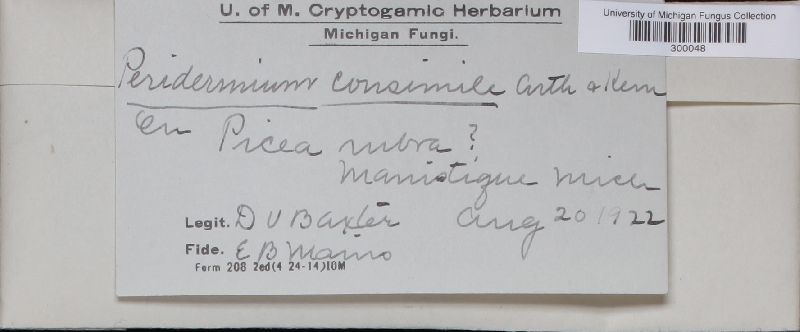 U. of M. Cryptogamic Herbarium
Michigan Fungi.
University of Michigan Fungus Collection
300048
Peridermium consimile Arth & Kern
On Picea rubra?
Manistique Mich
Legit. D V Baxter Aug 20 1922
Fide. E B Mains
Form 208 2ed(4 24-14)10M